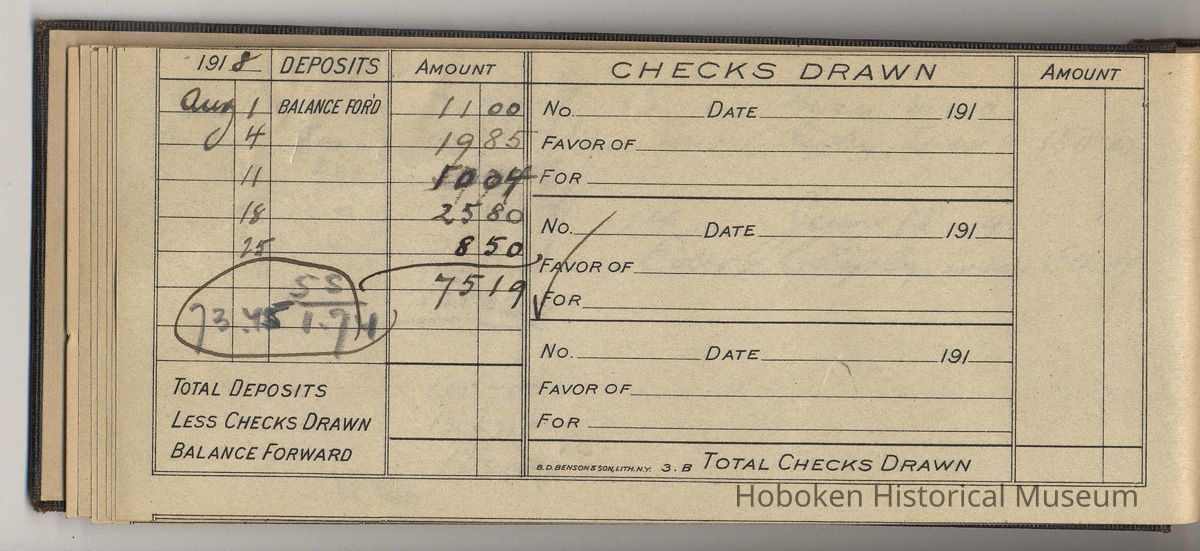 1918 DEPOSITS AMOUNT CHECKS DRAWN AMOUNT
Aug 1 BALANCE FOR'D 11 00 No. DATE 191
4 19 85 FAVOR OF
11 10 04 FOR
18 25 80 No. DATE 191
25 8 50 FAVOR OF
55 75 19 FOR
73.45 1.74
No. DATE 191
TOTAL DEPOSITS FAVOR OF
LESS CHECKS DRAWN FOR
BALANCE FORWARD B.D. BENSON & SON, LITH. N.Y. 3.B TOTAL CHECKS DRAWN
Hoboken Historical Museum